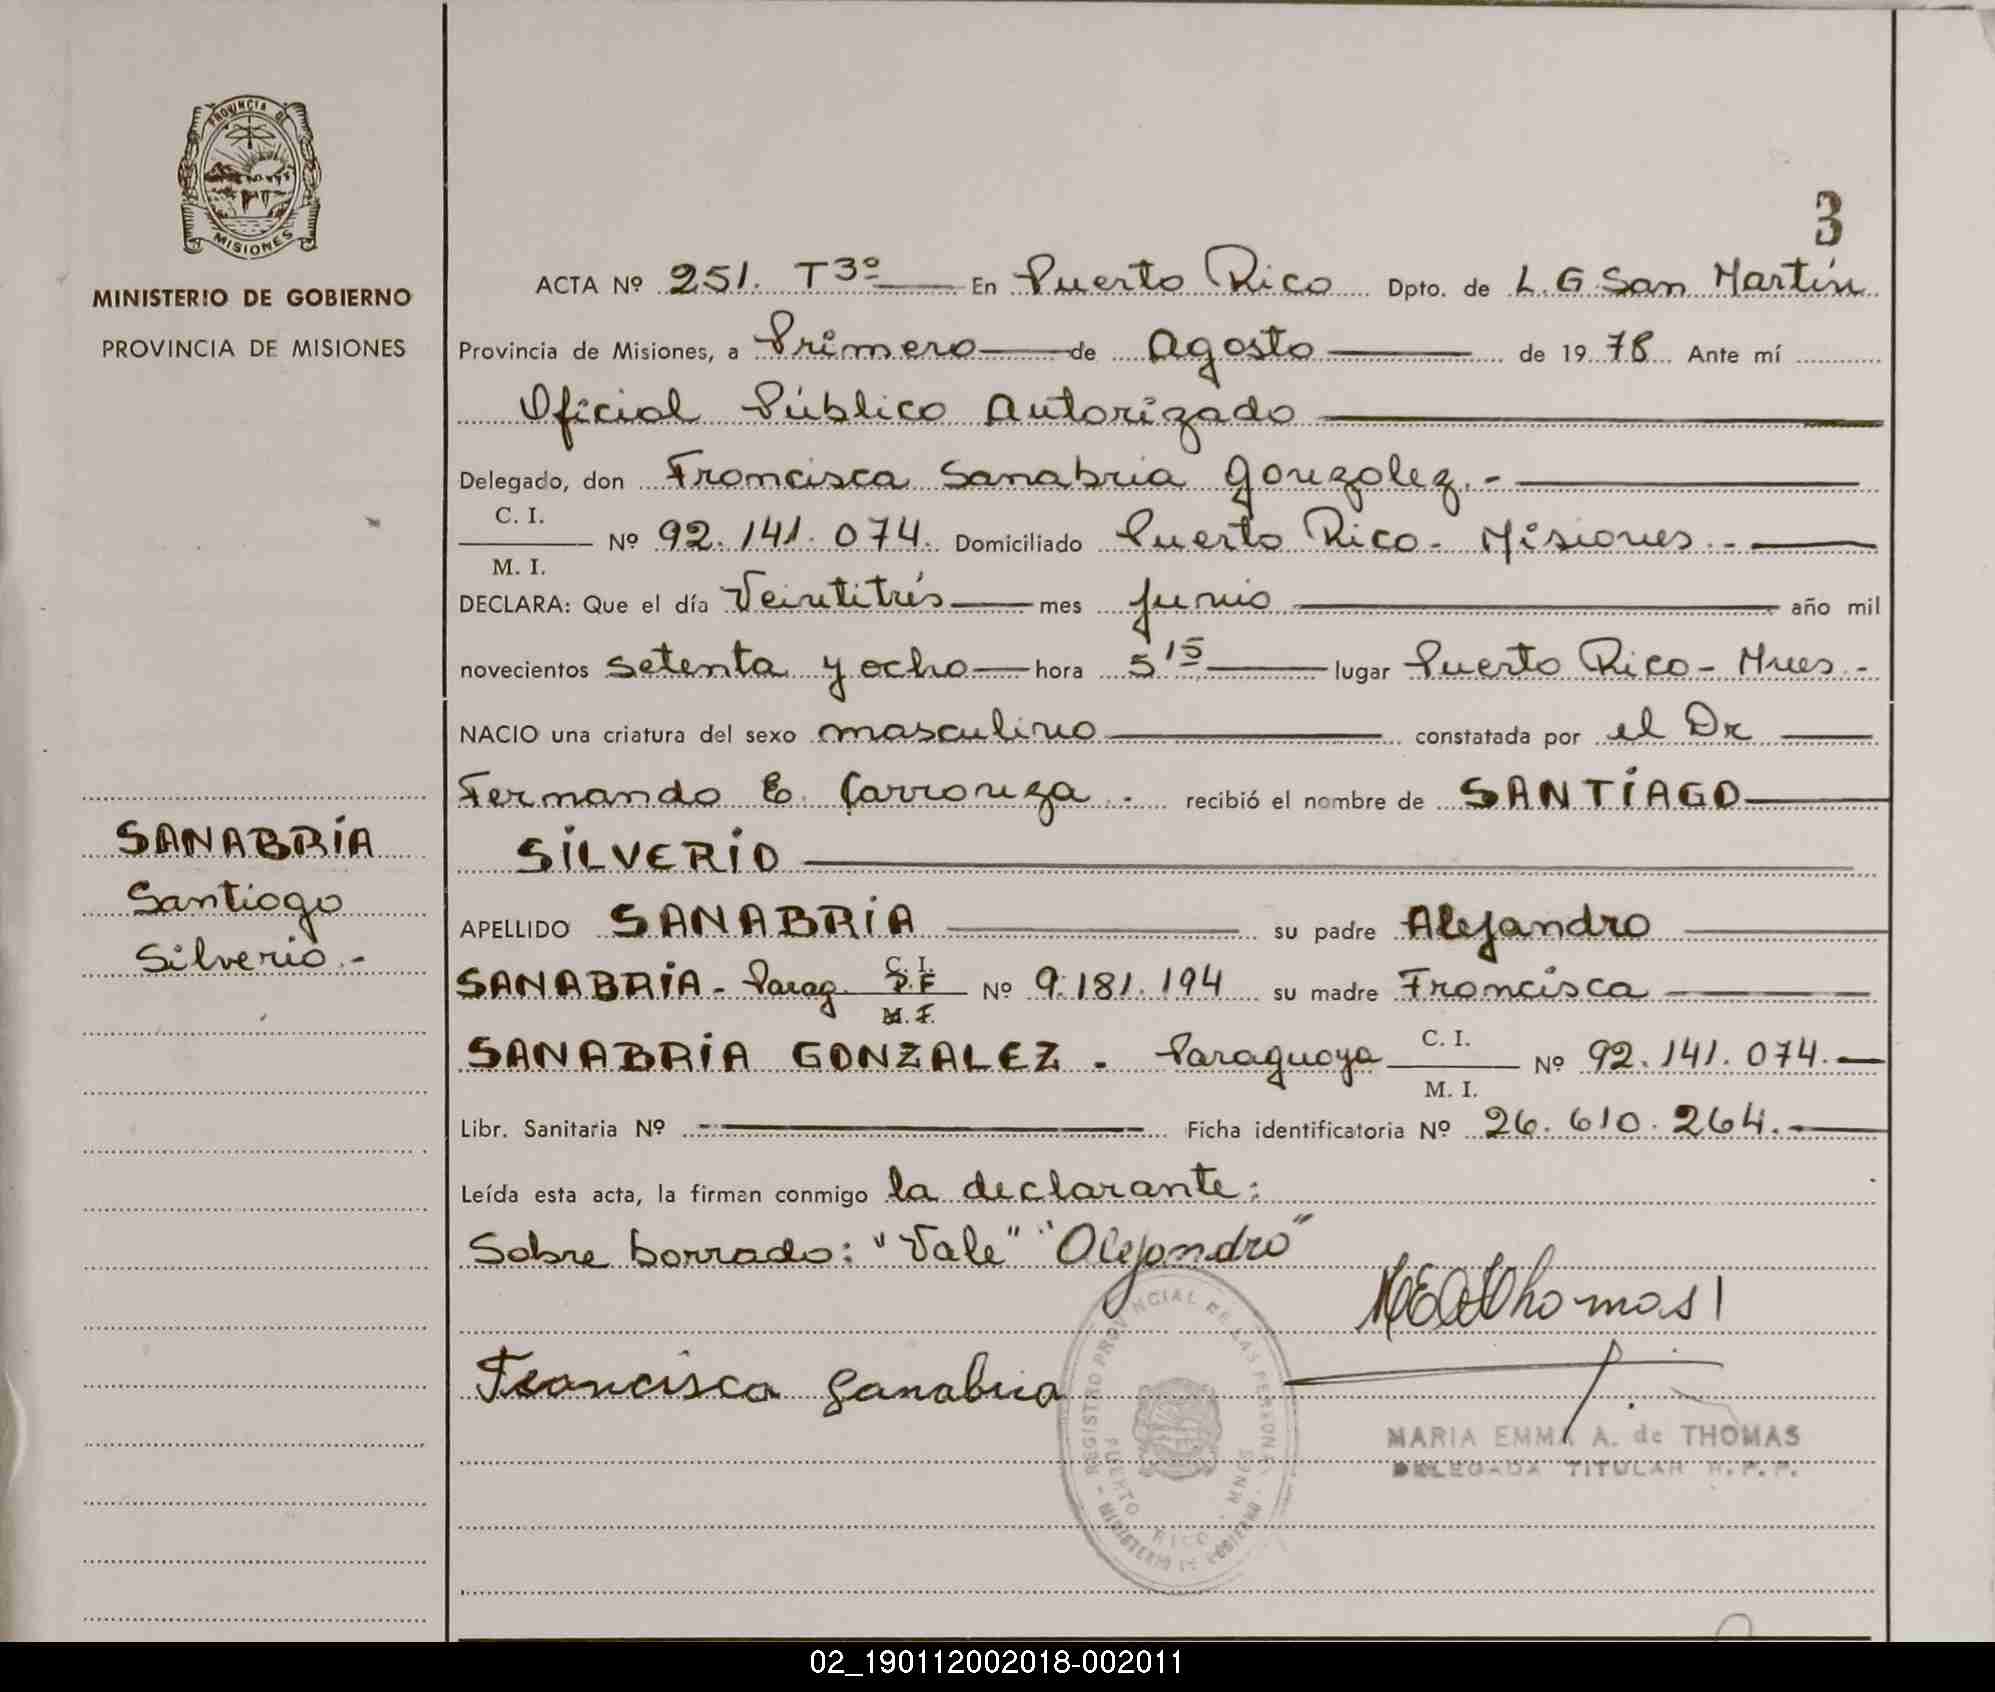 PROVINCIA DE
MISIONES
MINISTERIO DE GOBIERNO
PROVINCIA DE MISIONES
SANABRIA
Santiago
Silverio.-
3
ACTA Nº 251. T3º En Puerto Rico Dpto. de L.G San Martín
Provincia de Misiones, a Primero de Agosto de 1978 Ante mí
Oficial Público Autorizado
Delegado, don Francisca Sanabria Gonzalez.-
C. I.
Nº 92.141.074. Domiciliado Puerto Rico - Misiones.-
M. I.
DECLARA: Que el día Veintitrés mes junio año mil
novecientos setenta y ocho hora 5 15 lugar Puerto Rico - Mnes.-
NACIO una criatura del sexo masculino constatada por el Dr
Fernando E. Carronza.- recibió el nombre de SANTIAGO
SILVERIO
APELLIDO SANABRIA su padre Alejandro
C. I.
SANABRIA - Parag. Nº 9.181.194 su madre Francisca
M. I.
SANABRIA GONZALEZ - Paraguaya C. I. Nº 92.141.074.
M. I.
Libr. Sanitaria Nº Ficha identificatoria Nº 26.610.264.
Leída esta acta, la firman conmigo la declarante:
Sobre borrado: "Vale" "Alejandro"
Francisca Sanabria
MEAThomas
MARIA EMMA A. de THOMAS
DELEGADA TITULAR R. P. P.
REGISTRO PROVINCIAL DE LAS PERSONAS
PUERTO RICO - MNES
- MINISTERIO DE GOBIERNO -
02_190112002018-002011